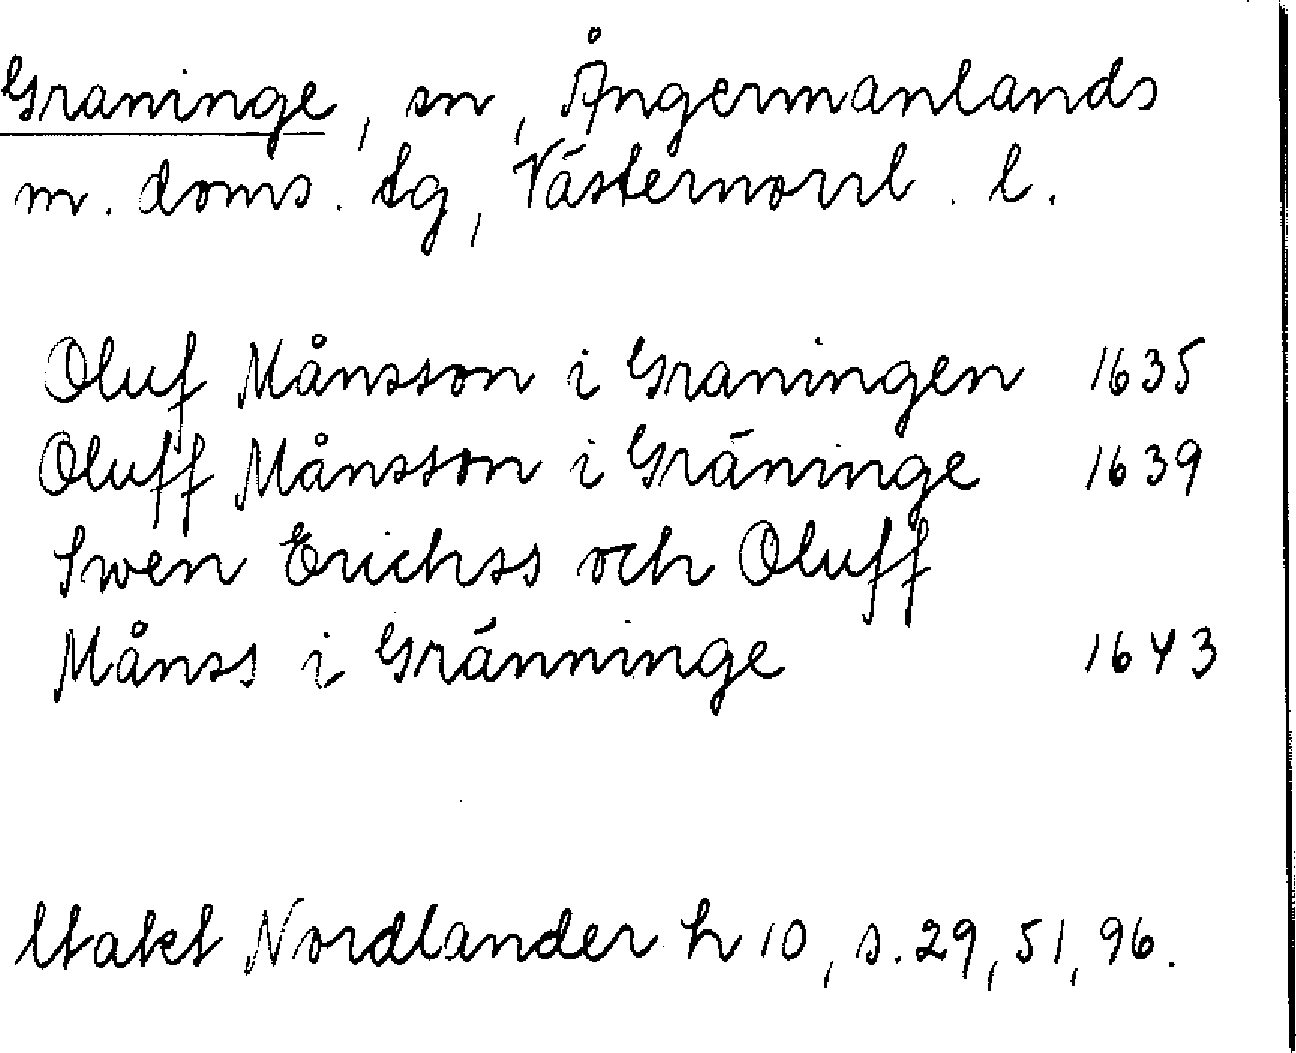 Graninge, sn, Ångermanlands
m. doms. tg, Västernorrl. l.
Oluf Månsson i Graningen 1635
Oluff Månsson i Gräninge 1639
Swen Erichss och Oluff
Månss i Gränninge 1643
Utakt Nordlander h 10, s. 29, 51, 96.